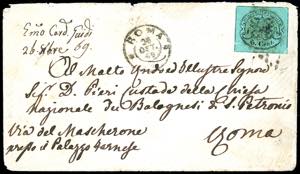 Emo Card. Guidi
26. 8bre 69.
ROMA
OTT
69
6 CENT.
Al Molto Ill^re Signore
Sig. D. Pieri Custode della Chiesa
Nazionale dei Bolognesi di S. Petronio
Via del Mascherone
presso il Palazzo Farnese
Roma